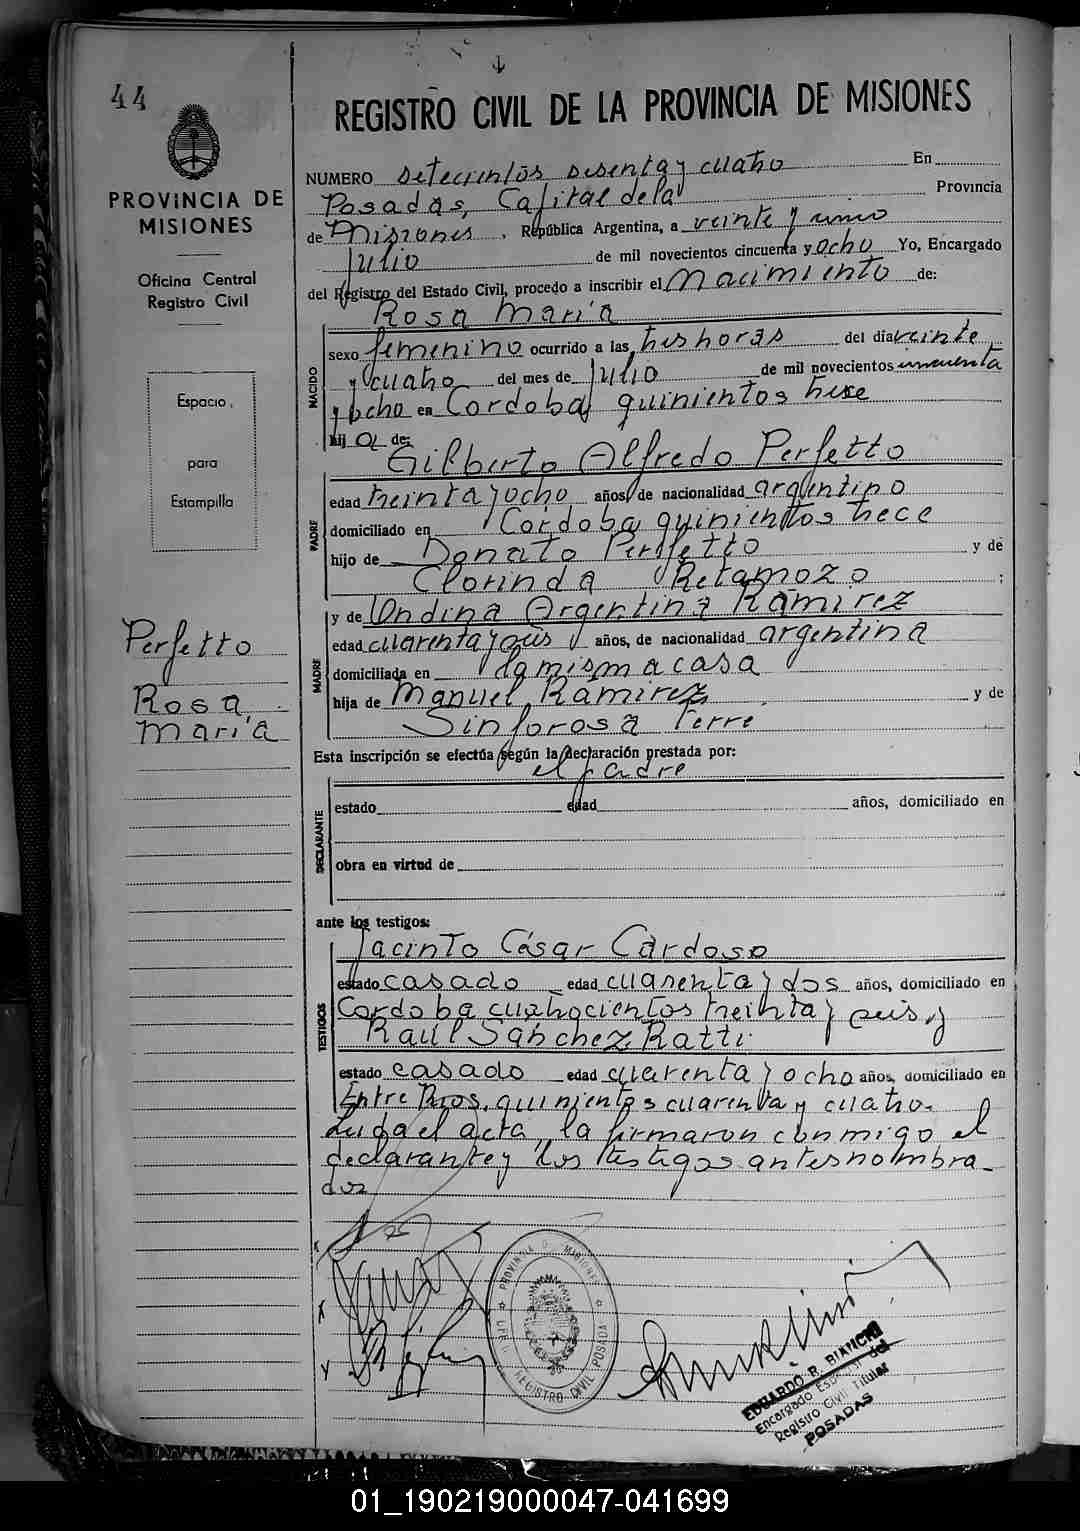 44
PROVINCIA DE
MISIONES
Oficina Central
Registro Civil
Espacio
para
Estampilla
Perfetto
Rosa
María
REGISTRO CIVIL DE LA PROVINCIA DE MISIONES
NUMERO setecientos sesenta y cuatro En
Posadas, Capital de la Provincia
de Misiones, República Argentina, a veinte y
julio de mil novecientos cincuenta y ocho Yo, Encargado
del Registro del Estado Civil, procedo a inscribir el Nacimiento de:
Rosa María
NACIDO
sexo femenino ocurrido a las tres horas del día veinte
y cuatro del mes de julio de mil novecientos cincuenta
y ocho en Cordoba quinientos trece
hij a de:
Gilberto Alfredo Perfetto
PADRE
edad treinta y ocho años, de nacionalidad argentino
domiciliado en Cordoba quinientos trece
hijo de Donato Perfetto y de
Clorinda Retamozo ;
y de Ondina Argentina Ramirez
MADRE
edad cuarenta y seis años, de nacionalidad argentina
domiciliada en la misma casa
hija de Manuel Ramirez y de
Sinforosa Ferre
Esta inscripción se efectúa según la declaración prestada por:
el padre
DECLARANTE
estado edad años, domiciliado en
obra en virtud de
ante los testigos:
Jacinto César Cardoso
TESTIGOS
estado casado edad cuarenta y dos años, domiciliado en
Cordoba cuatrocientos treinta y seis y
Raúl Sánchez Ratti
estado casado edad cuarenta y ocho años, domiciliado en
Entre Rios, quinientos cuarenta y cuatro.
Leida el acta, la firmaron conmigo el
declarante y los testigos antes nombra-
dos
PROVINCIA DE MISIONES
REGISTRO CIVIL POSADAS
EDUARDO R. BIANCHI
Encargado del
Registro Civil Titular
POSADAS
01_190219000047-041699